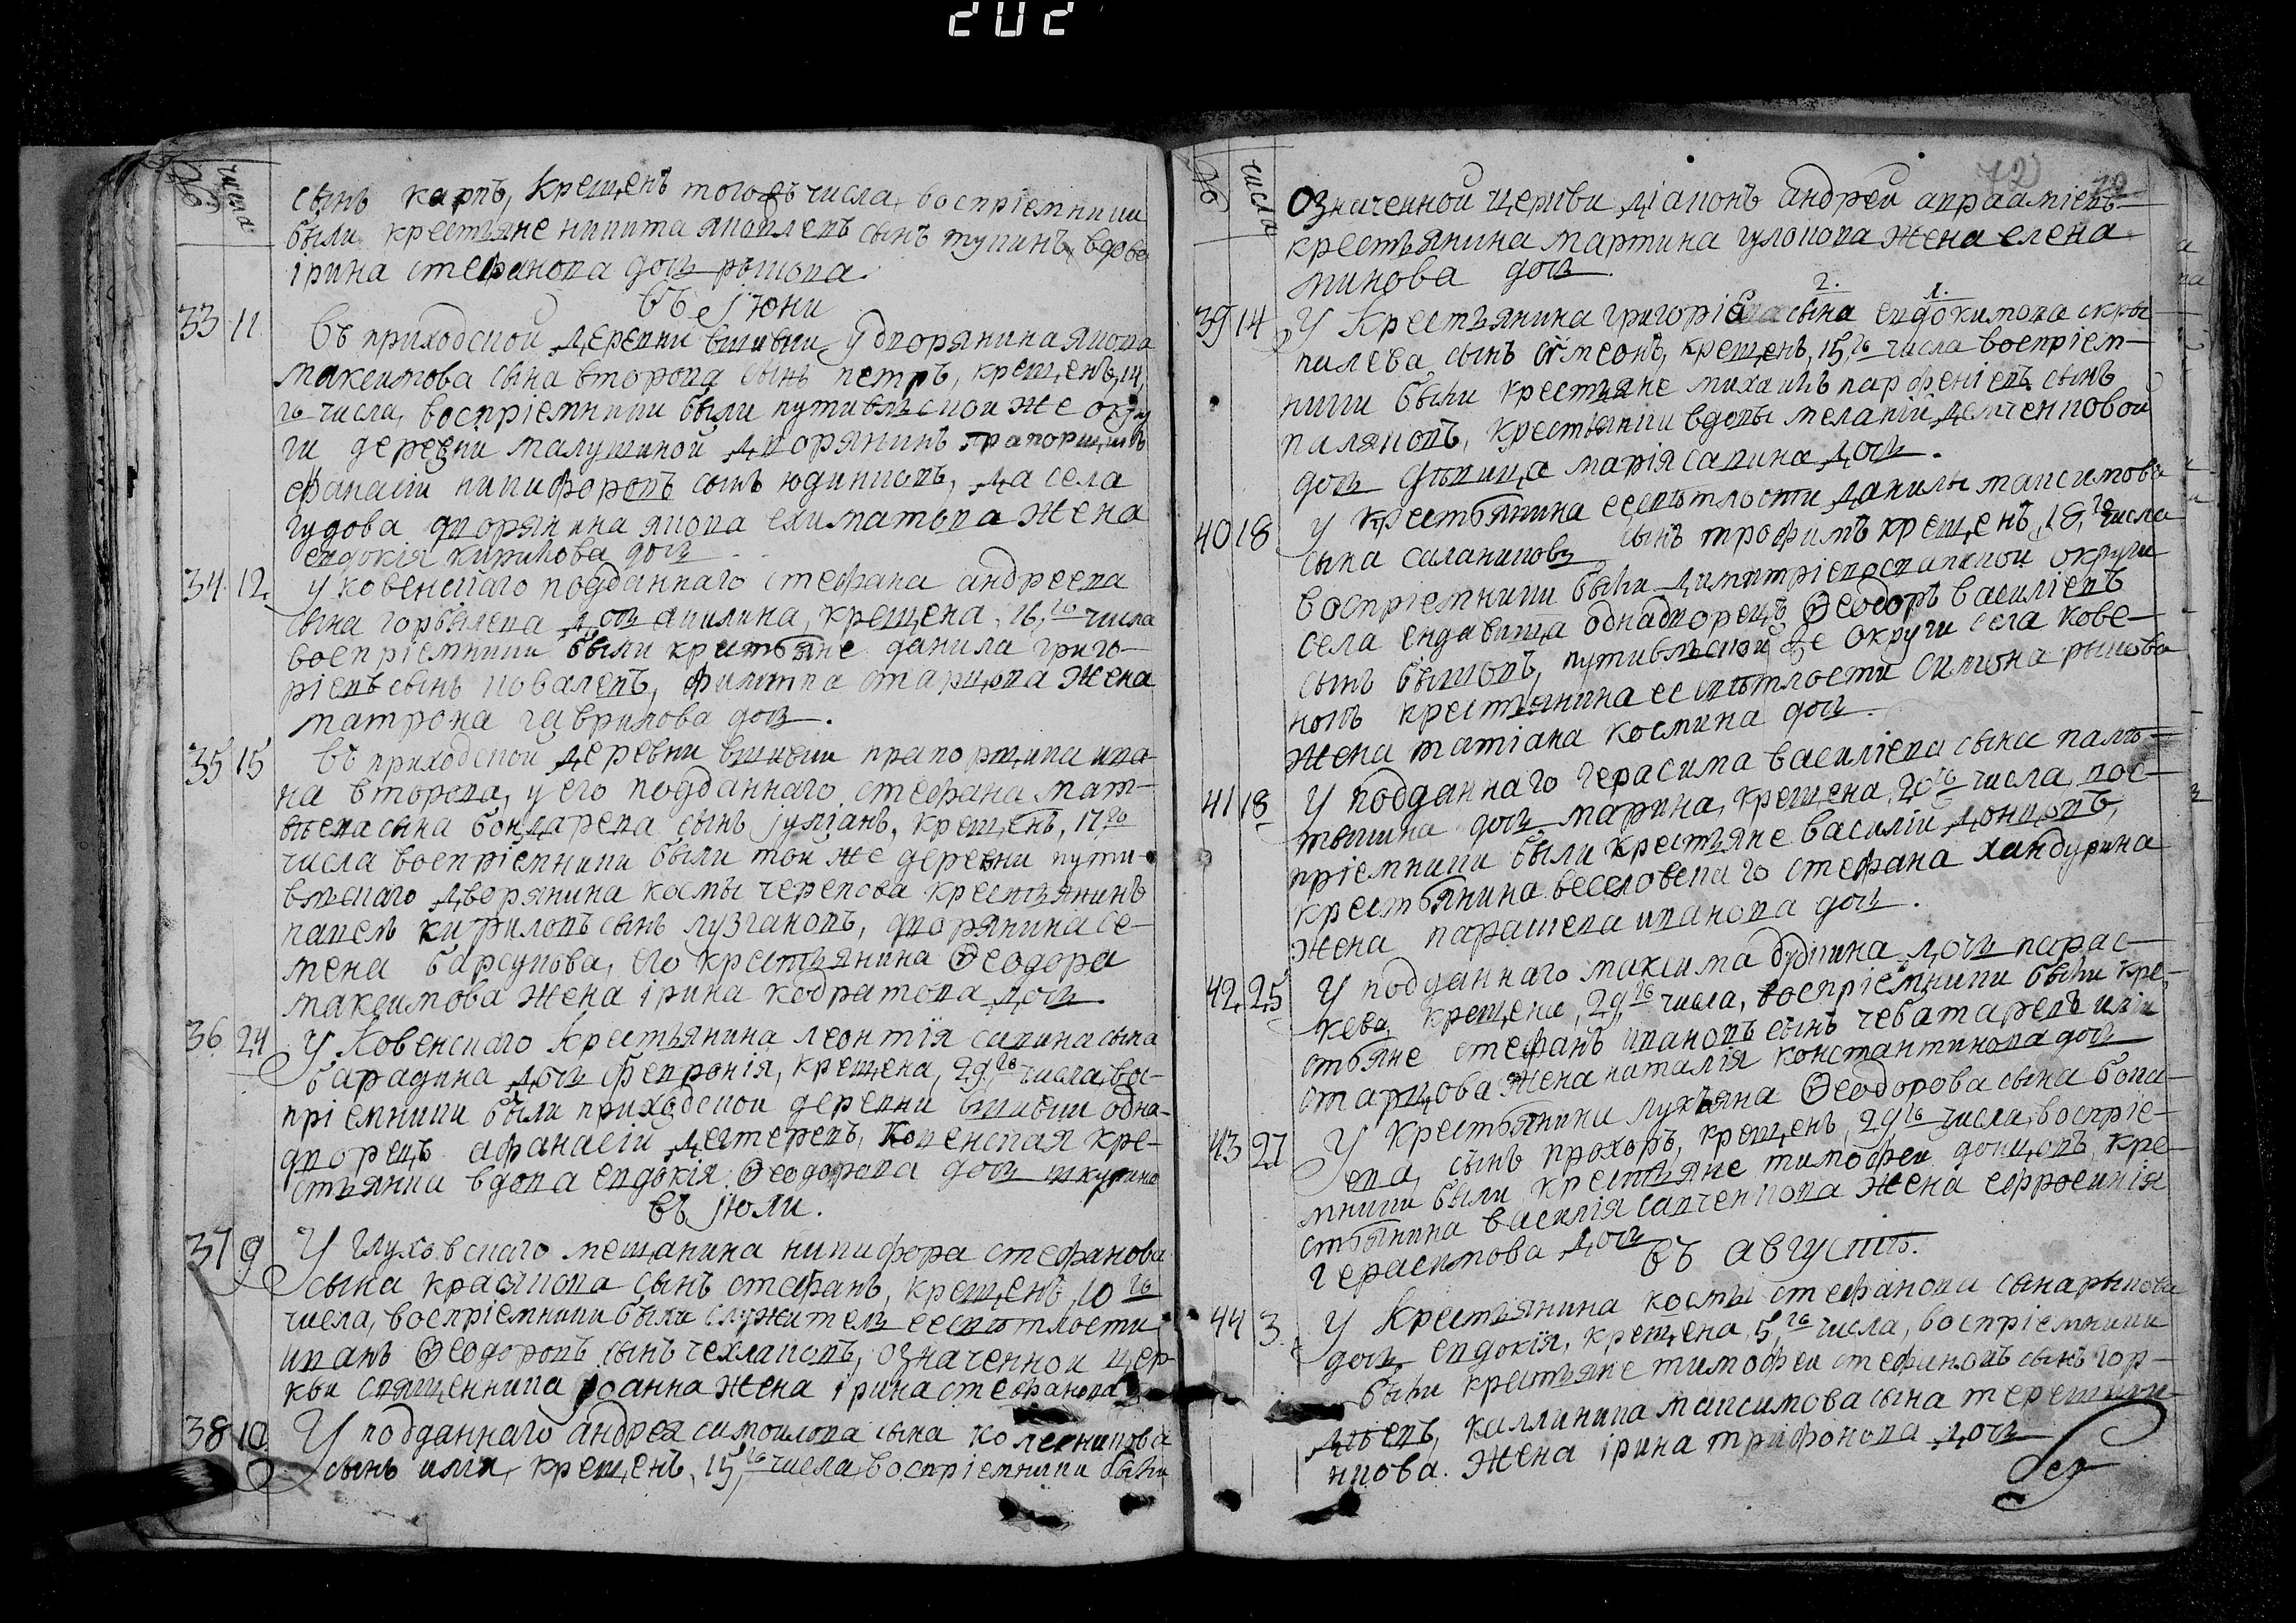 202
№ числа
сынъ карпъ, крещенъ тогожъ числа, воспріемники
были крестьяне никита яковлевъ сынъ тупинъ, вдова
ірина стефанова дочь рыкова.
въ іюни
33 11 въ приходской деревни вшивки у дворянина якова
максимова сына второва сынъ петръ, крещенъ, 14,
го числа, воспріемники были путивльской же окру
ги деревни малушиной дворянинъ прапорщикъ
афанасіи никифоровъ сынъ юдинковъ, да села
гудова дворянина якова ехиматова жена
евдокія кирикова дочь
34. 12. у ковенскаго подданнаго стефана андреева
сына горбылева дочь акилина, крещена, 16, го числа
воспріемники были крестьяне данила григо-
ріевъ сынъ ковалевъ, филиппа старцова жена
матрона гаврилова дочь.
35 15 въ приходской деревни вшивки прапорщика ива-
на второва, у его подданнаго стефана мат-
вѣева сына бондарева сынъ іуліанъ, крещенъ, 17 го
числа воспріемники были той же деревни пути-
вльскаго дворянина космы черепова крестьянинъ
павелъ кириловъ сынъ лузгановъ, дворянина се-
мена барсукова, его крестьянина Ѳеодора
максимова жена ірина кодратова дочь.
36 24 У Ковенскаго крестьянина леонтія савина сына
барадина дочь февронія, крещена, 29, го числа, вос-
пріемники были приходской деревни вшивки одно-
дворецъ афанасіи дегтеревъ, Ковенская кре-
стьянки вдова евдокія Ѳеодорова дочь шкурина
въ іюли.
37 9 У глуховскаго мещанина никифора стефанова
сына краснкова сынъ стефанъ, крещенъ, 10 го
числа, воспріемники были служитель ее свѣтлости
иванъ Ѳеодоровъ сынъ чехлаковъ, означенной цер-
кви священника іоанна жена ірина стефанова
38 10 У подданнаго андрея самоилова сына колесникова
сынъ илія, крещенъ, 15, го числа, воспріемники были
72 70
№ числа
означенной церкви діаконъ андреи авраамієвъ
крестьянина мартина гулокова жена елена
минова дочь.
2. 1.
39 14 У Крестьянина григорієва сына евдокимова скры
пилева сынъ сѵмеонъ, крещенъ, 15, го числа воспріем-
ники были крестьяне михаилъ парфеніевъ сынъ
паляковъ, крестьянки вдовы меланіи демченковой
дочь дѣвица марія савина дочь.
40 18 У крестьянина ее свѣтлости данилы максимова
сына саланикова сынъ трофимъ крещенъ, 18, го числа
воспріемники были димитріевосвапской округи
села ендавища однодворецъ Ѳеодоръ василіевъ
сынъ быковъ, путивльской же округи села кове-
нокъ крестьянина ее свѣтлости симона рыкова
жена татіана космина дочь.
41 18 У подданнаго герасима василіева сына паль-
тышина дочь марина, крещена, 20 го числа, вос-
пріемники были крестьяне василіи донцовъ,
крестьянина веселовскаго стефана хандурина
жена парашева иванова дочь.
42. 25 У подданнаго максима будкина дочь парас-
кева, крещена, 29, го числа, воспріемники были кре-
стьяне стефанъ ивановъ сынъ чеботаревъ иліи
старцова жена наталія константинова дочь
43 27 У Крестьянина лукьяна Ѳеодорова сына бока-
ева, сынъ прохоръ, крещенъ, 29 го числа, воспріе-
мники были крестьяне тимофеи донцовъ, кре-
стьянина василія савченкова жена ефросинія
герасимова дочь
въ августѣ.
44 3. У Крестьянина космы стефанова сына рыкова
дочь евдокія, крещена, 5, го числа, воспріемники
были крестьяне тимофеи стефановъ сынъ гор-
дѣевъ, каллиника максимова сына терешни-
никова. Жена ірина трифонова дочь